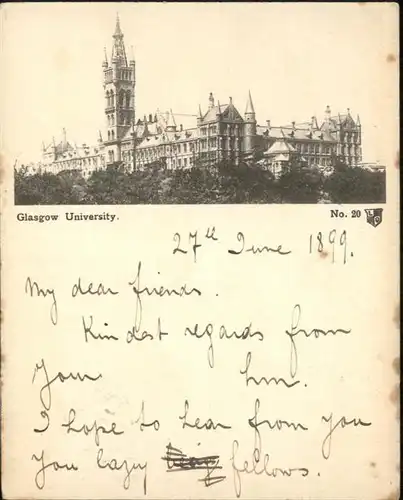 Glasgow University.
No. 20
27th June 1899.
My dear friends.
Kindest regards from
Your
I hope to hear from you
You lazy fellows.